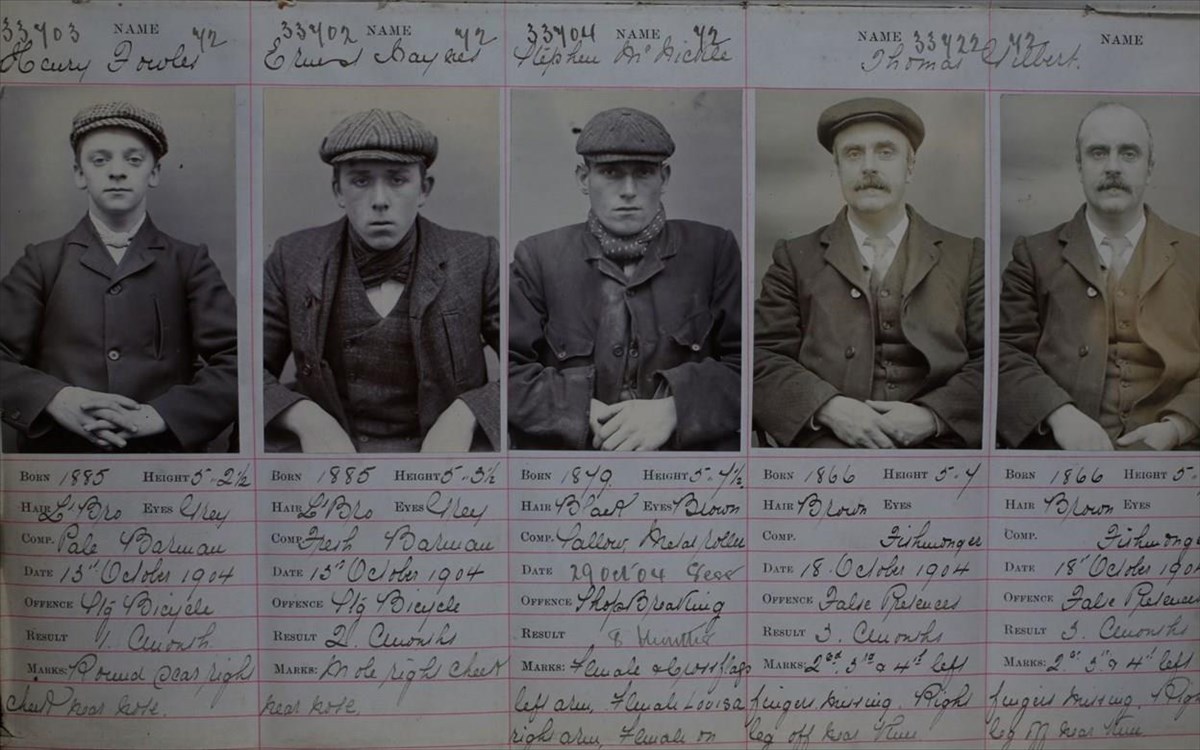 33703 NAME 72
Henry Fowler
33702 NAME 72
Ernest Haynes
33704 NAME 72
Stephen McNickle
NAME 33722 72
Thomas Gilbert.
NAME
BORN 1885 HEIGHT 5-2½
HAIR Lt Bro EYES Grey
COMP. Pale Barman
DATE 13th October 1904
OFFENCE Stg Bicycle
RESULT 1. Cmonth
MARKS: Round Scar right
cheek near nose.
BORN 1885 HEIGHT 5-3½
HAIR Lt Bro EYES Grey
COMP. Fresh Barman
DATE 13th October 1904
OFFENCE Stg Bicycle
RESULT 2. Cmonths
MARKS: Mole right cheek
near nose.
BORN 1879 HEIGHT 5-4½
HAIR Black EYES Brown
COMP. Sallow, Metal roller
DATE 29 Oct 04 Sess
OFFENCE Shop Breaking
RESULT 8 Months
MARKS: Female & Cross flags
left arm, Female Louisa
right arm, Female on
BORN 1866 HEIGHT 5-4
HAIR Brown EYES
COMP. Fishmonger
DATE 18. October 1904
OFFENCE False Pretences
RESULT 3. Cmonths
MARKS: 2nd 3rd & 4th left
fingers missing. Right
leg off near knee
BORN 1866 HEIGHT 5-
HAIR Brown EYES
COMP. Fishmonge
DATE 18th October 1904
OFFENCE False Pretences
RESULT 3. Cmonths
MARKS: 2nd 3rd & 4th left
fingers missing. Rig
leg off near knee